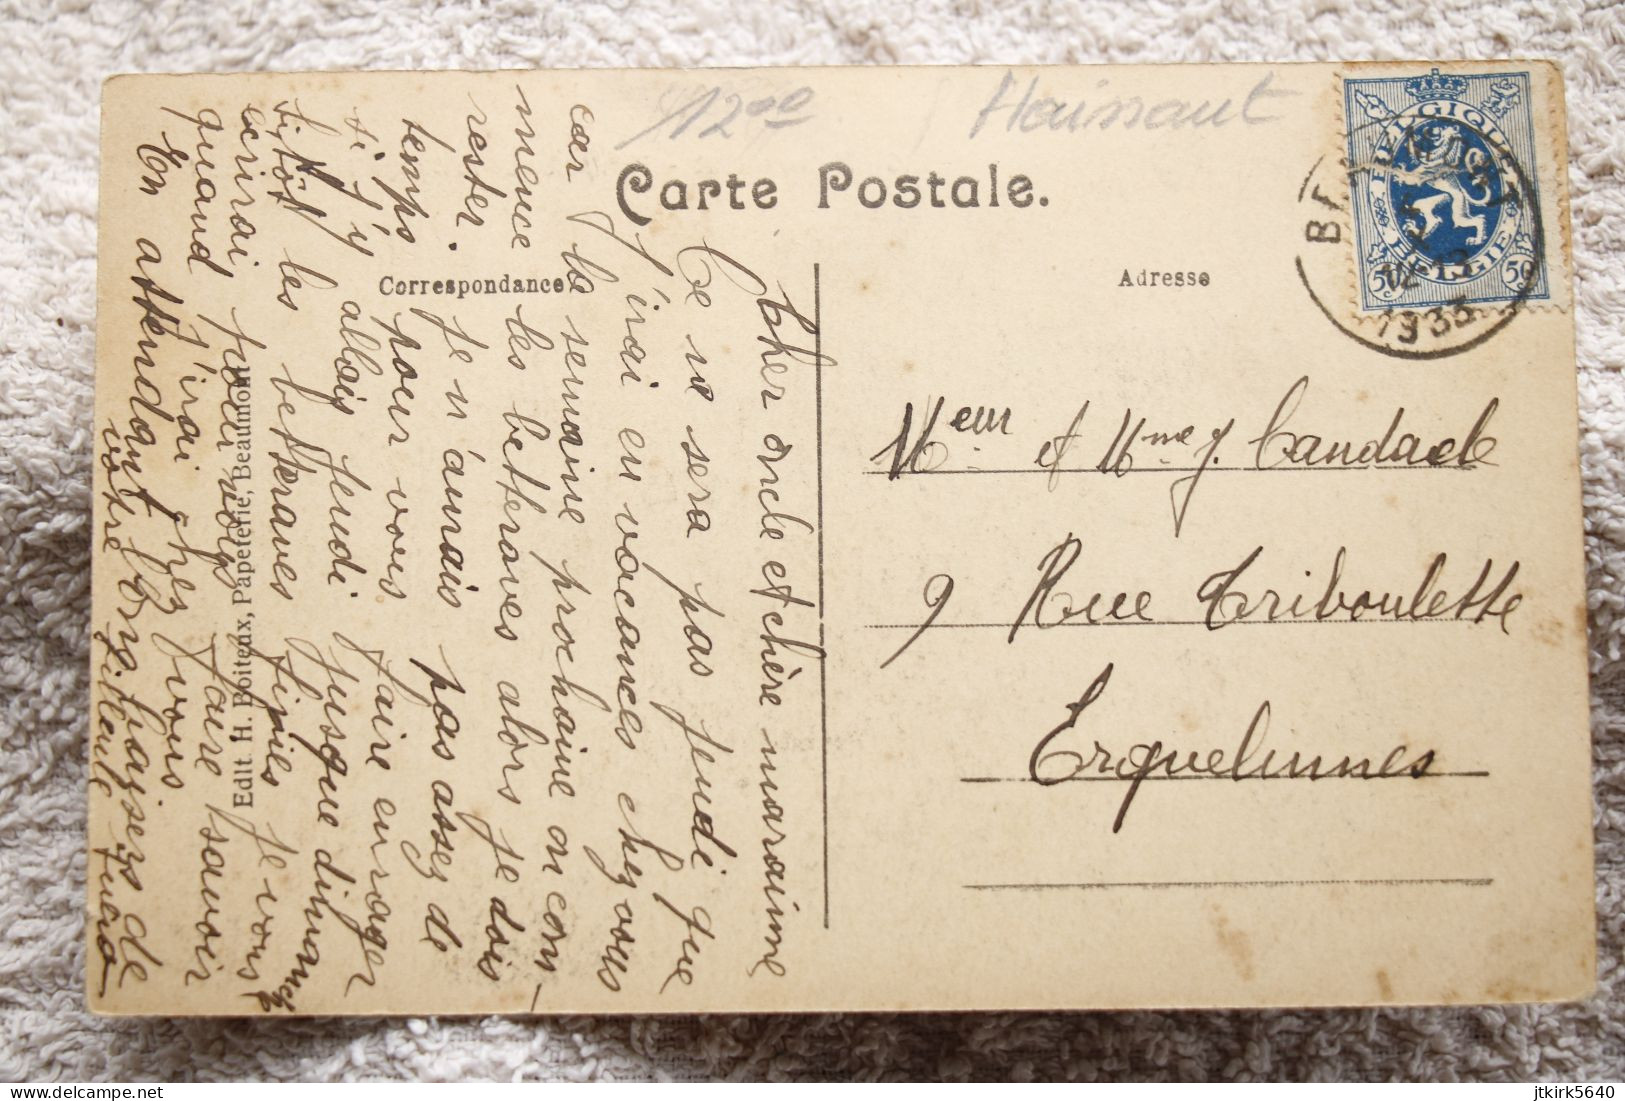 1200
Hainaut
Carte Postale.
Correspondance
Adresse
BELGIQUE
BELGIE
50c
50c
1933
Cher oncle et chère marraine
Ce ne sera pas jeudi que
j'irai en vacances chez vous
car la semaine prochaine on com-
mence les betteraves alors je dois
rester. je n'aurais pas assez de
temps pour vous faire enrager
si j'y allais jeudi jusque dimanche
sitôt les betteraves finies je vous
écrirai pour vous faire savoir
quand j'irai chez vous
En attendant bons baisers de
votre filleule
Edit. H. Boiteux, Papeterie, Beaumont
Meur et Mme J. Candael
9 Rue Triboulette
Erquelinnes
jtkirk5640